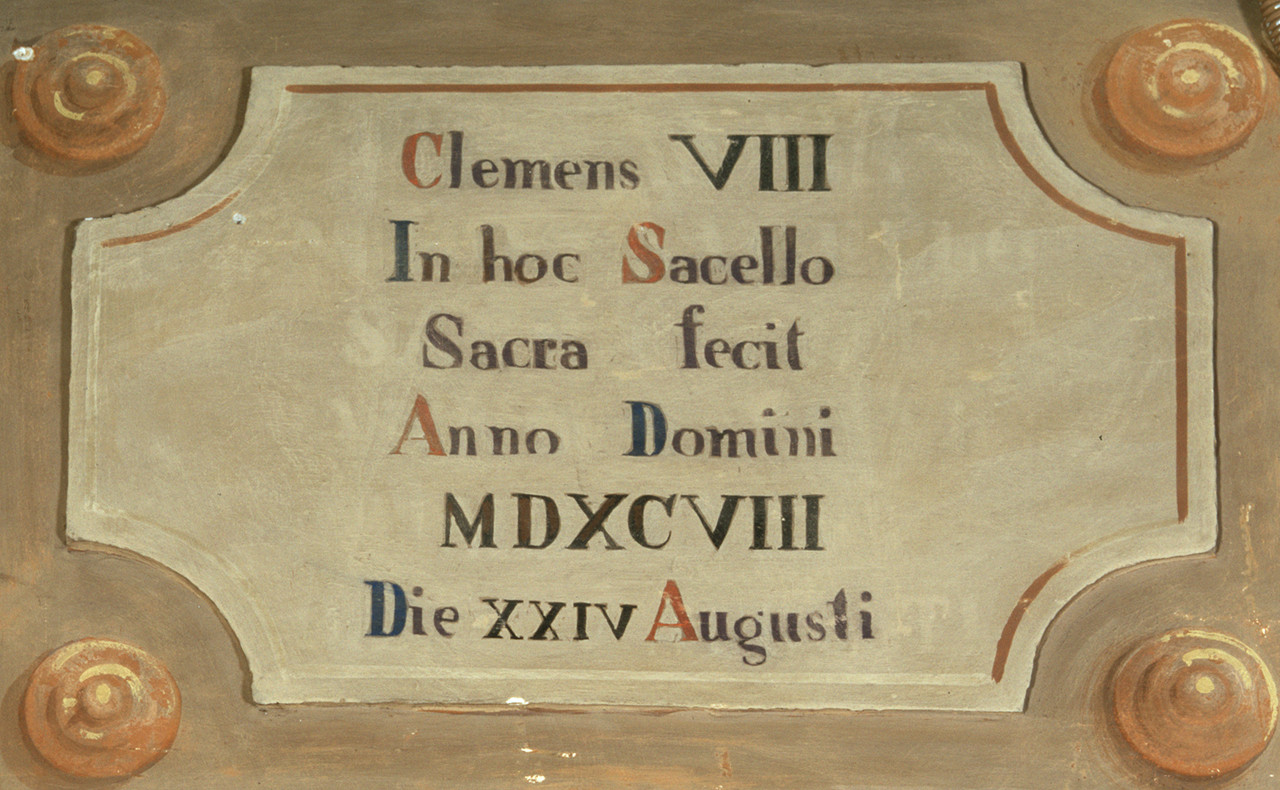 Clemens VIII
In hoc Sacello
Sacra fecit
Anno Domini
MDXCVIII
Die XXIV Augusti